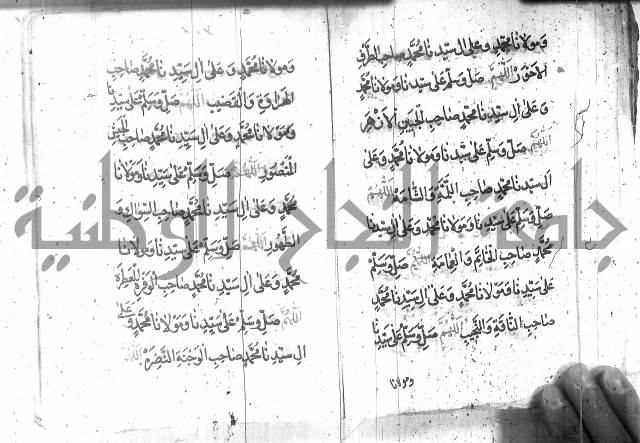 ومولانا محمد وعلى ال سيدنا محمد صاحب الطرف
الاحور اللهم صل وسلم على سيدنا ومولانا محمد
وعلى ال سيدنا محمد صاحب الجبين الازهر
اللهم صل وسلم على سيدنا ومولانا محمد وعلى
ال سيدنا محمد صاحب اللمة والشامة اللهم
صل وسلم على سيدنا ومولانا محمد وعلى ال سيدنا
محمد صاحب الخاتم والعمامة اللهم صل وسلم
على سيدنا ومولانا محمد وعلى ال سيدنا محمد
صاحب الناقة والنجيب اللهم صل وسلم على سيدنا
ومولانا
ومولانا محمد وعلى ال سيدنا محمد صاحب
الهراوة والقضيب اللهم صل وسلم على سيدنا
ومولانا محمد وعلى ال سيدنا محمد صاحب الجبين
المنصور اللهم صل وسلم على سيدنا ومولانا
محمد وعلى ال سيدنا محمد صاحب السواك و
الطهور اللهم صل وسلم على سيدنا ومولانا
محمد وعلى ال سيدنا محمد صاحب الوفرة العطرة
اللهم صل وسلم على سيدنا ومولانا محمد وعلى
ال سيدنا محمد صاحب الوجنة النضرة اللهم
جامعة النجاح الوطنية